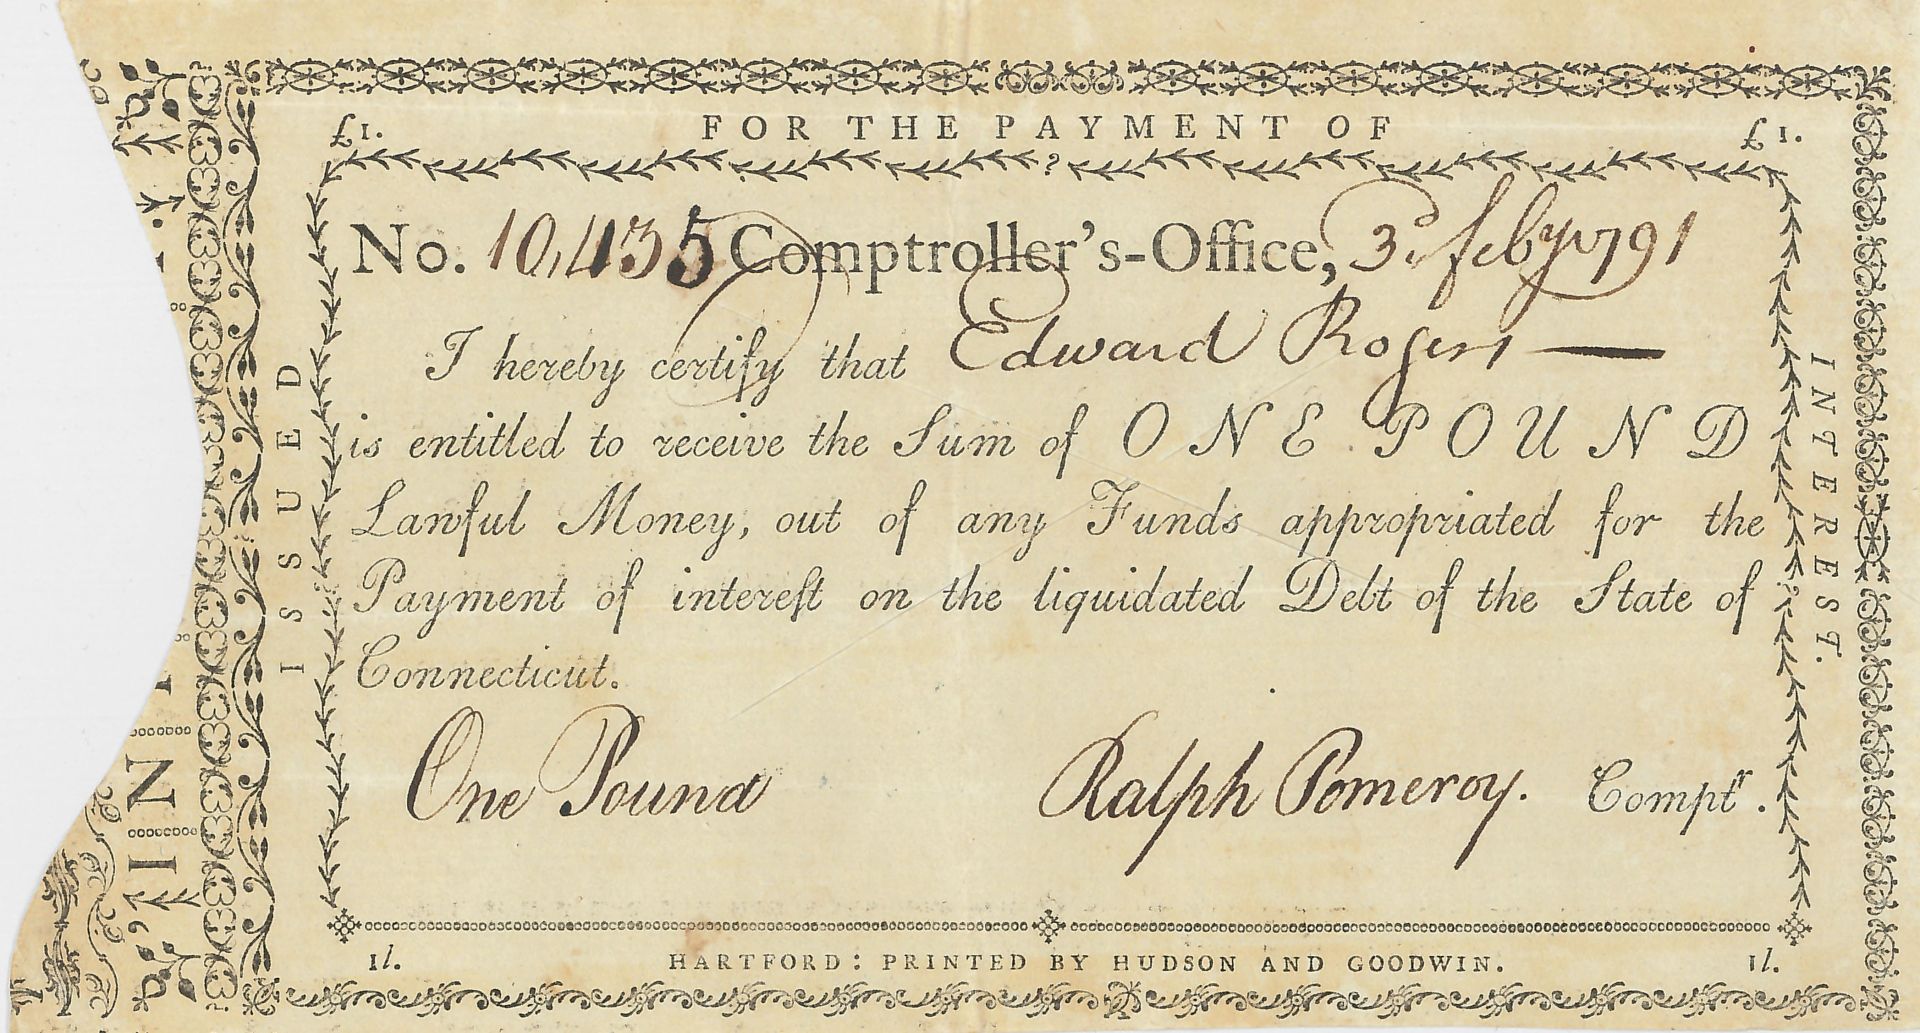 £1. FOR THE PAYMENT OF £1.
No. 10,435 Comptroller's-Office, 3d. feby 1791
I hereby certify that Edward Rogers —
is entitled to receive the Sum of ONE POUND
Lawful Money, out of any Funds appropriated for the
Payment of intereſt on the liquidated Debt of the State of
Connecticut.
One Pound Ralph Pomeroy. Comptr.
1l. HARTFORD: PRINTED BY HUDSON AND GOODWIN. 1l.
ISSUED
INTEREST.